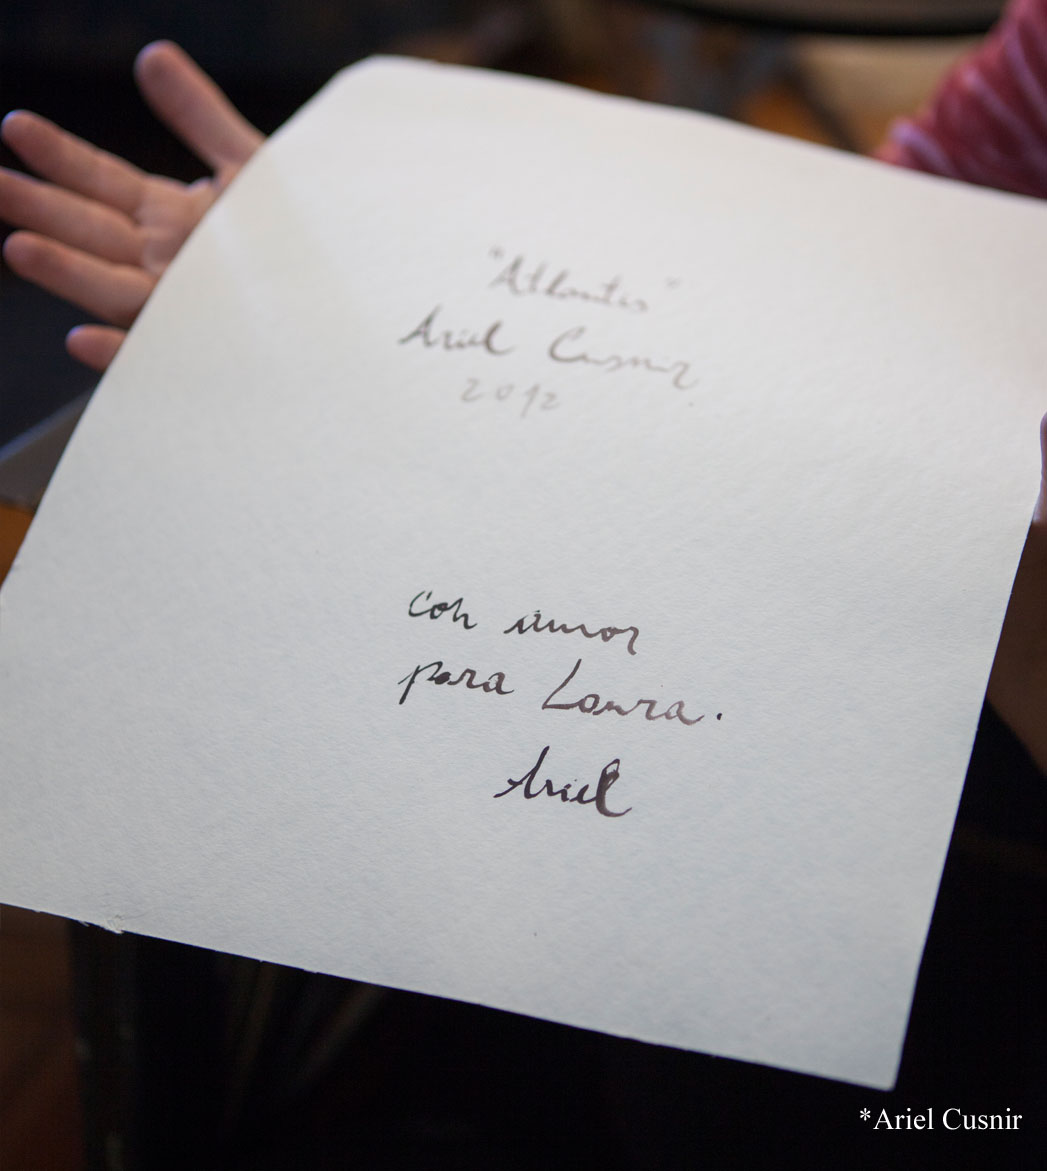 "Atlantis"
Ariel Cusnir
2012
con amor
para Laura.
Ariel
*Ariel Cusnir